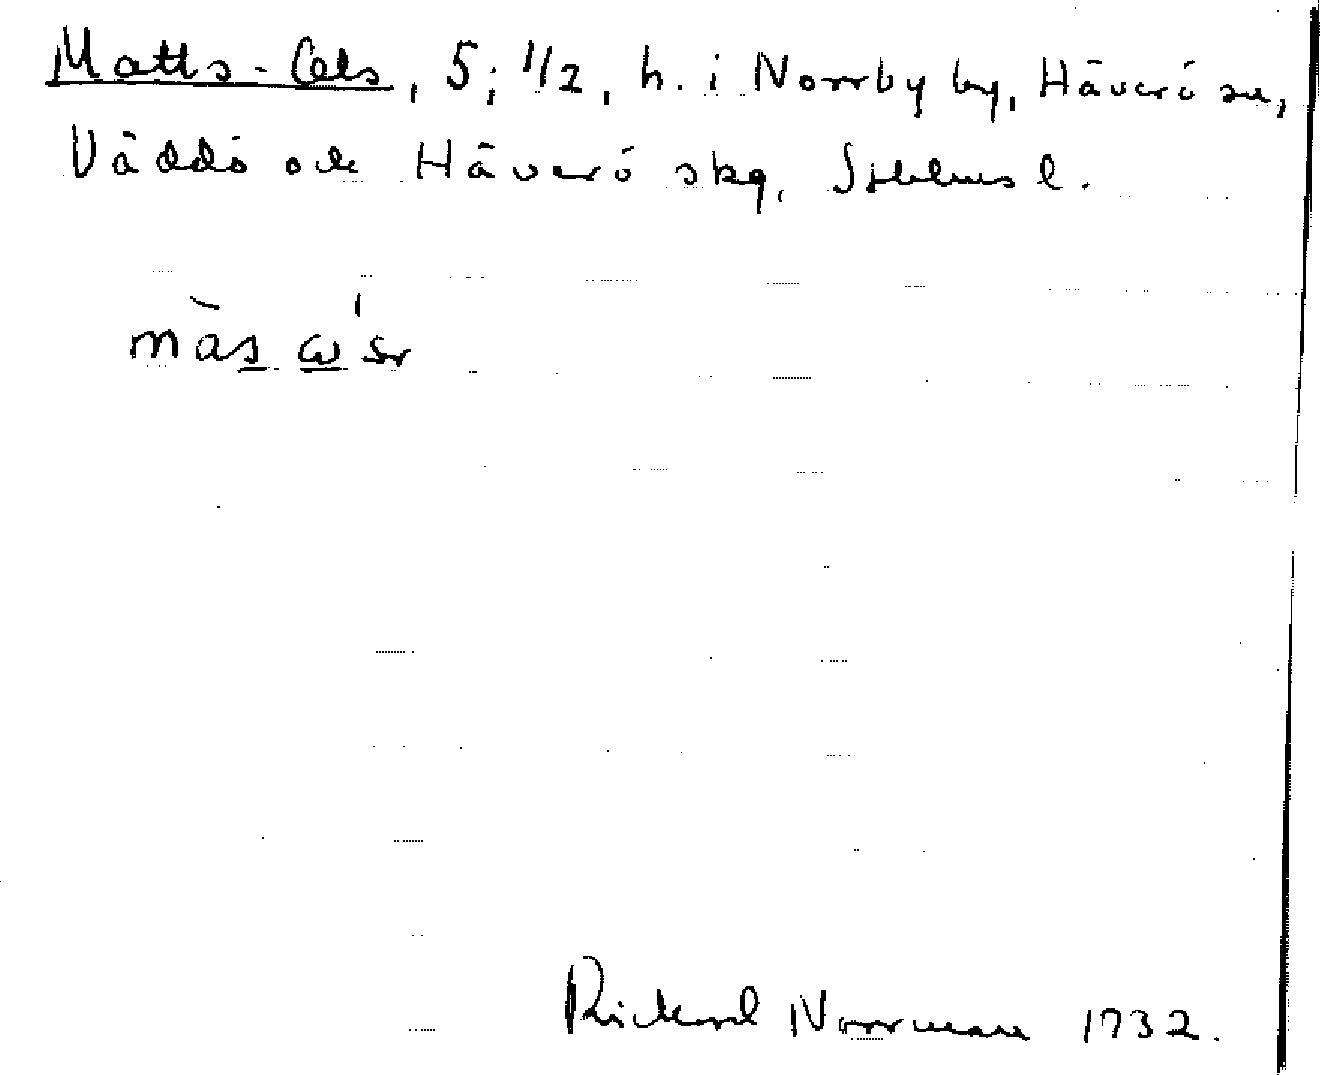 Matts-Cels, 5; 1/2, h. i Norrby by, Häverö sn,
Väddö och Häverö skg, Sthlms l.
Rickard Norrman 1932.